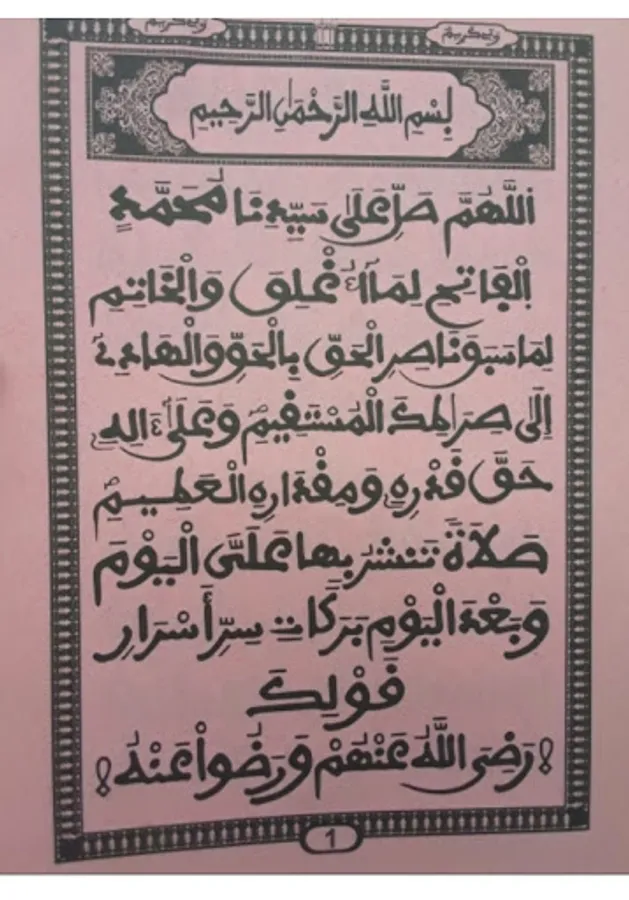 بِسْمِ اللَّهِ الرَّحْمَٰنِ الرَّحِيمِ
اَللَّهُمَّ صَلِّ عَلَىٰ سَيِّدِنَا مُحَمَّدٍ
اِلْفَاتِحِ لِمَا أُغْلِقَ وَالْخَاتِمِ
لِمَا سَبَقَ نَاصِرِ الْحَقِّ بِالْحَقِّ وَالْهَادِي
إِلَىٰ صِرَاطِكَ الْمُسْتَقِيمِ وَعَلَىٰ ءَالِهِ
حَقَّ قَدْرِهِ وَمِقْدَارِهِ الْعَظِيمِ
صَلَاةً تَنْشُرُ بِهَا عَلَيَّ الْيَوْمَ
وَبَعْدَ الْيَوْمِ بَرَكَاتِ سِرِّ أَسْرَارِ
قَوْلِكَ
رَضِيَ اللَّهُ عَنْهُمْ وَرَضُواْ عَنْهُ
1